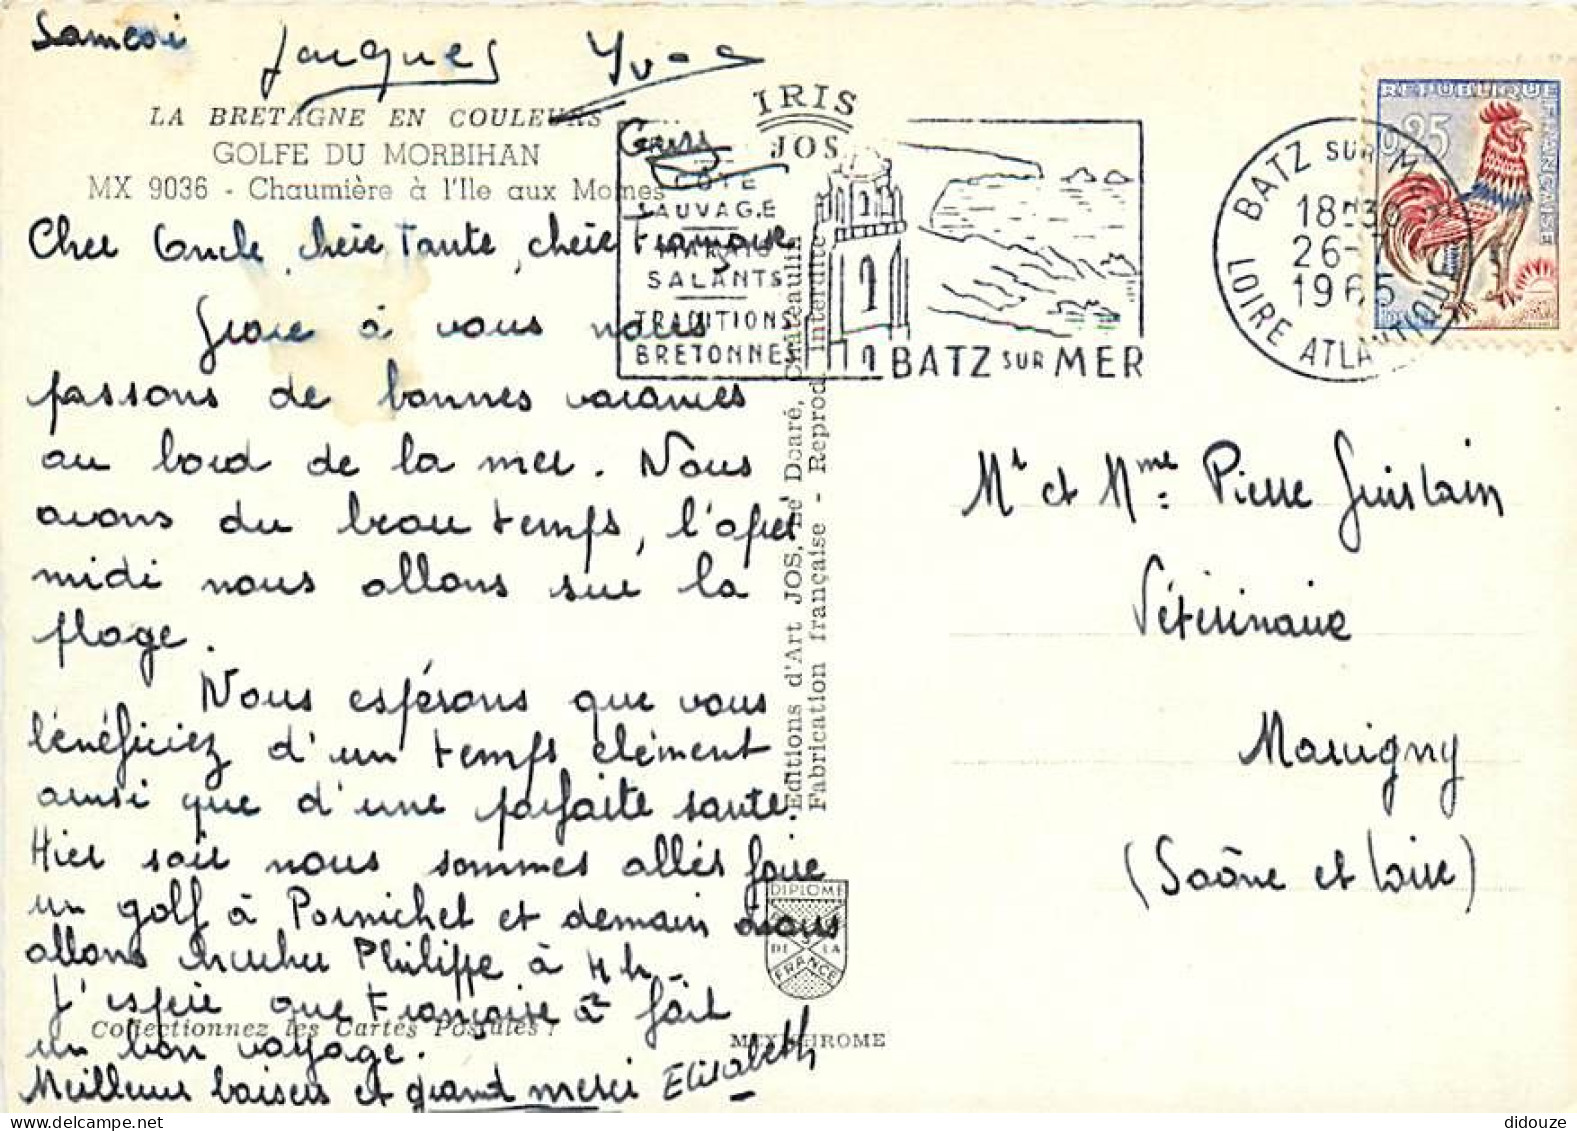 Samedi
Jacques Yvon
LA BRETAGNE EN COULEURS
GOLFE DU MORBIHAN
MX 9036 - Chaumière à l'Ile aux Moines
Cher Oncle, chère Tante, chère Françoise
Grâce à vous nous
passons de bonnes vacances
au bord de la mer. Nous
avons du beau temps, l'après
midi nous allons sur la
plage.
Nous espérons que vous
bénéficiez d'un temps clément
ainsi que d'une parfaite santé.
Hier soir nous sommes allés faire
un golf à Pornichet et demain nous
allons chercher Philippe à 4 h.
J'espère que Françoise a fait
un bon voyage.
Meilleurs baisers et grand merci Elisabeth
Collectionnez les Cartes Postales !
IRIS
JOS
CÔTE
SAUVAGE
MARAIS
SALANTS
TRADITIONS
BRETONNES
BATZ SUR MER
Editions d'Art JOS, Le Doaré, Châteaulin
Fabrication française - Reprod. interdite
DIPLOME
DE LA
FRANCE
MEXICHROME
BATZ SUR MER
18H30
26-7
1965
LOIRE ATLANTIQUE
REPUBLIQUE FRANÇAISE
0,25
Mr et Mme Pierre Guislain
Vétérinaire
Marcigny
(Saône et Loire)
didouze